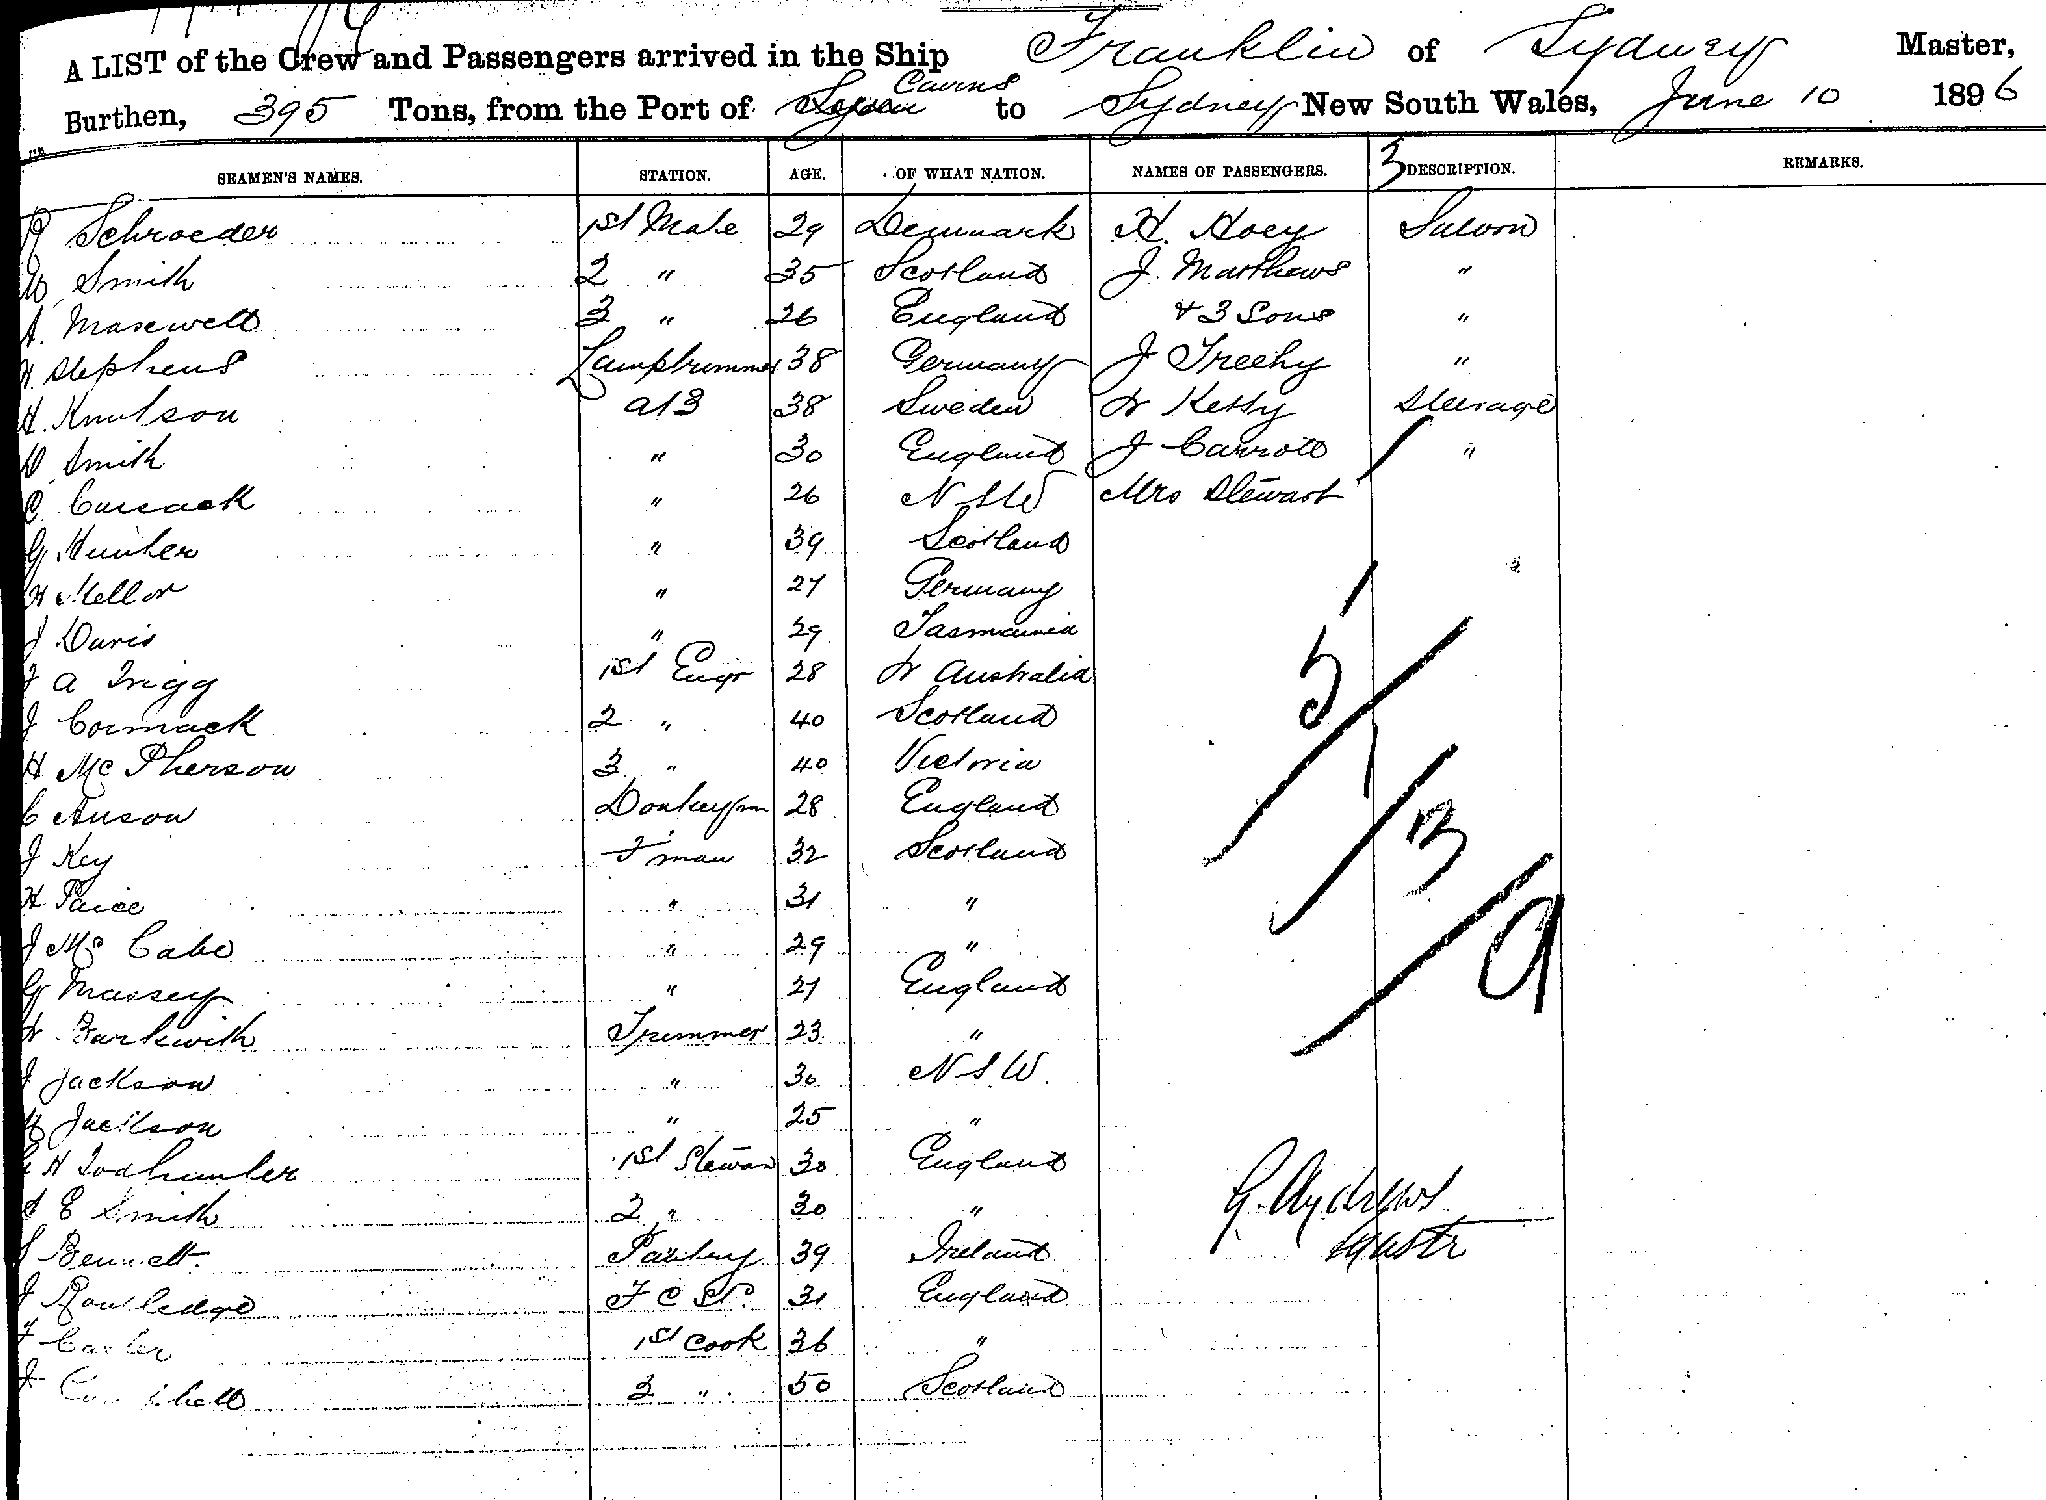 A LIST of the Crew and Passengers arrived in the Ship Franklin of Sydney Master,
Burthen, 395 Tons, from the Port of Cairns to Sydney New South Wales, June 10 1896
SEAMEN'S NAMES. STATION. AGE. OF WHAT NATION. NAMES OF PASSENGERS. DESCRIPTION. REMARKS.
Schroeder 1st Mate 29 Denmark H. Hoey Saloon
W Smith 2 " 35 Scotland J. Matthews "
A. Maxwell 3 " 26 England & 3 Sons "
H. Stephens Lamptrimmer 38 Germany J Treehy "
H. Knutson AB 38 Sweden W Kelly Steerage
D Smith " 30 England J Carroll "
C. Cussack " 26 N S W Mrs Stewart
G Hunter " 39 Scotland
H Mellor " 27 Germany
J Davis " 29 Tasmania
F A Trigg 1st Engr 28 W Australia
J Cormack 2 " 40 Scotland
H McPherson 3 " 40 Victoria
C Anson Donkeym 28 England
J Key F'man 32 Scotland
H Paice " 31 "
J McCabe " 29 "
G Massey " 21 England
W Barkwith Trimmer 23 "
J Jackson " 30 N S W.
H Jackson " 25 "
H Todhunter 1st Steward 30 England
E Smith 2 " 30 "
S Bennett Pantry 39 Ireland
J Routledge F C St. 31 England
F Carter 1st Cook 36 "
J 2 " 50 Scotland
5
13
9
G. Andrews
Mastr